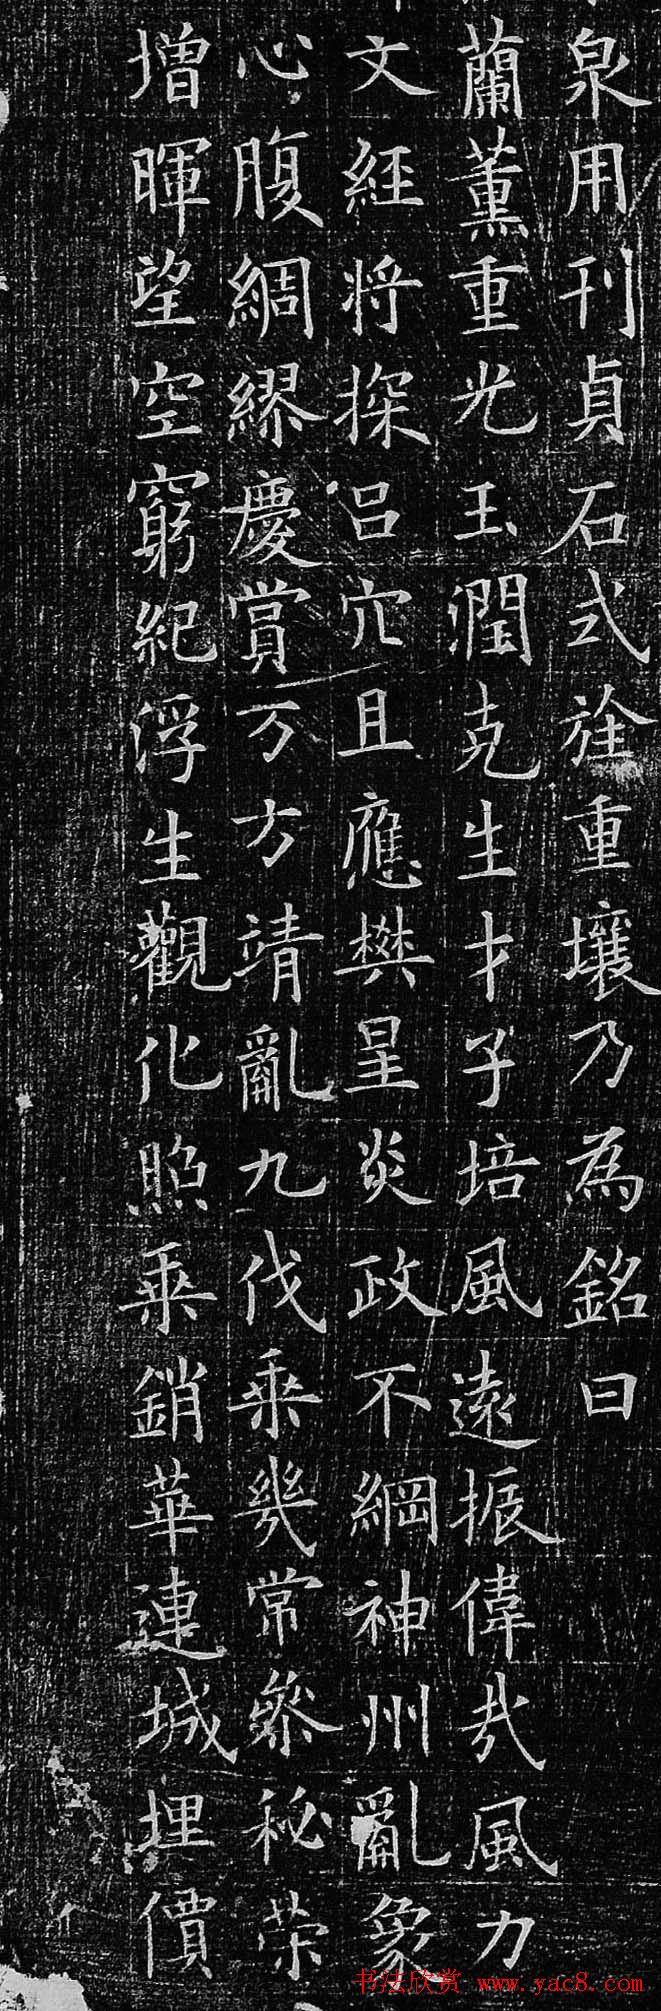 泉用刊貞石式旌重壤乃為銘曰
蘭薰重光玉潤克生才子培風遠振偉哉風力
文經將探呂穴且應樊星炎政不綱神州亂象
心腹綢繆慶賞万方靖亂九伐乘幾常叅秘荣
增暉望空窮紀浮生觀化照乘銷華連城埋價
书法欣赏 www.yac8.com